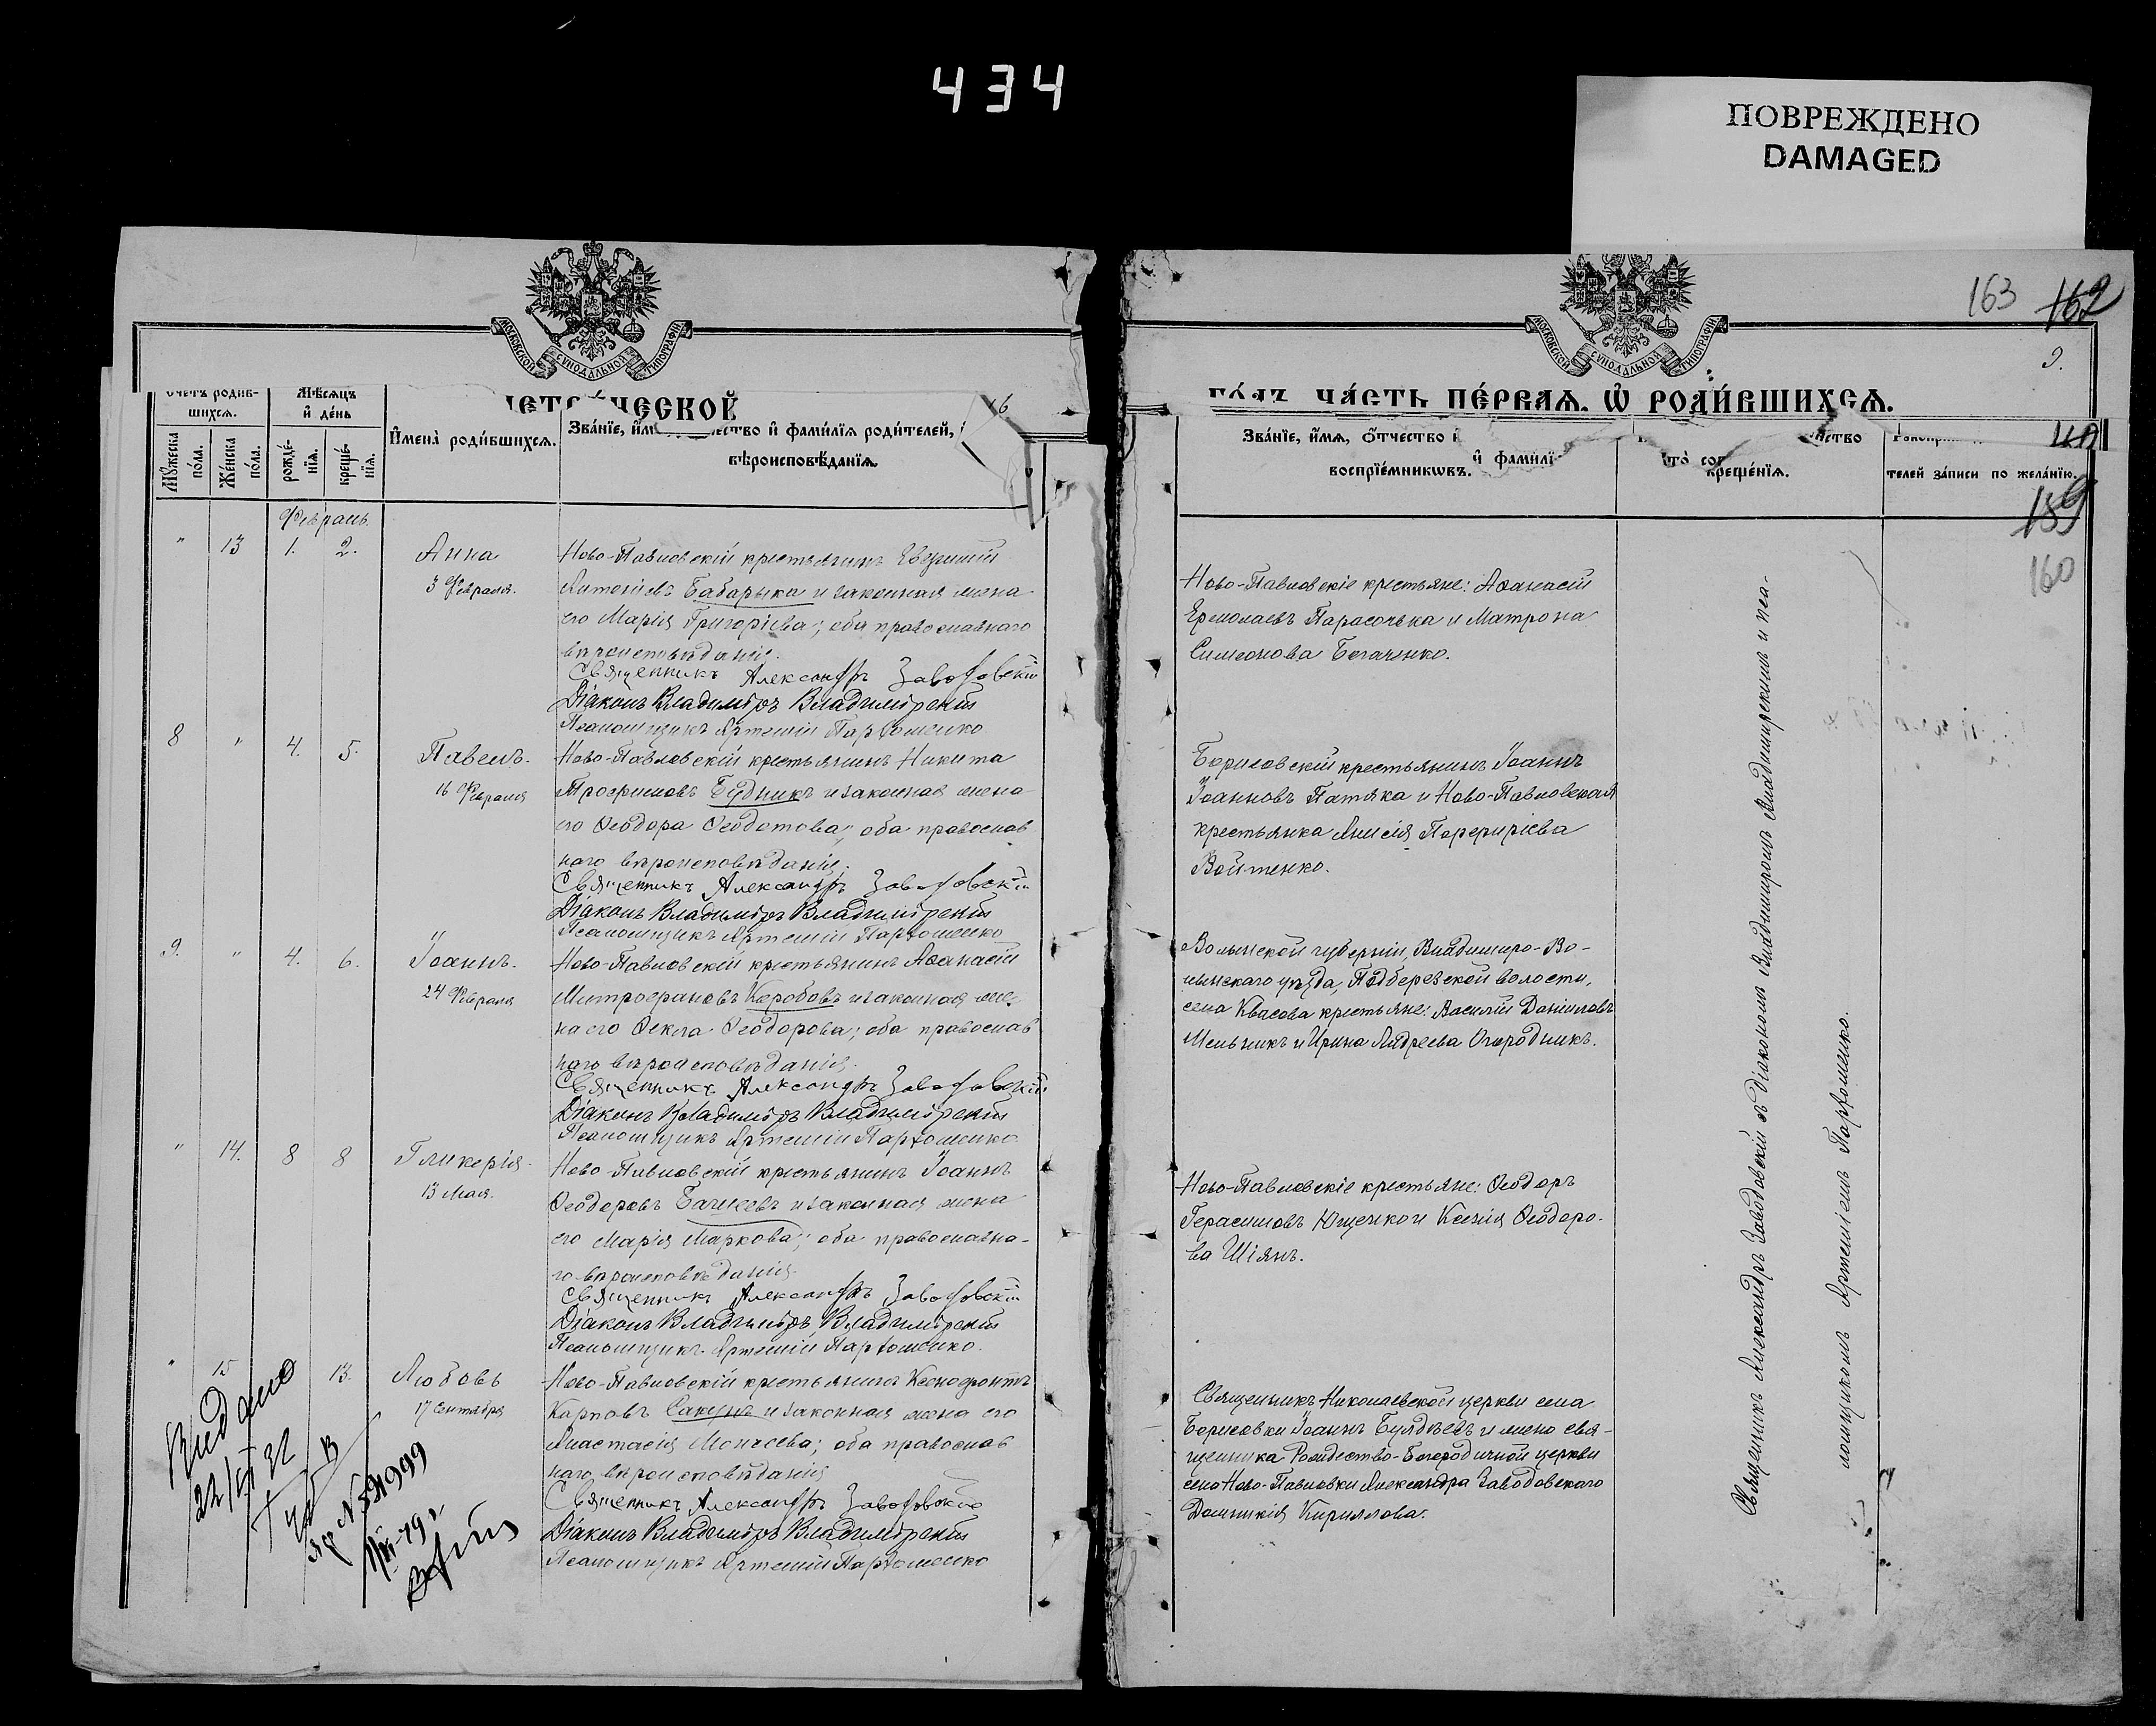 434
ПОВРЕЖДЕНО
DAMAGED
МОСКОВСКОЙ СѴНОДАЛЬНОЙ ТИПОГРАФІИ
МОСКОВСКОЙ СѴНОДАЛЬНОЙ ТИПОГРАФІИ
163 162
9.
ЧА́СТЬ ПЕ́РВАЯ. Ѽ РОДИ́ВШИХСЯ.
Счетъ родив-
шихся.
Мѣсяцъ
и҆ де́нь
Мꙋжеска
по́ла.
Же́нска
по́ла.
рожде́-
нїя.
креще́-
нїя.
И҆мена̀ роди́вшихся.
Зва́нїе, и҆мѧ и҆ фами́лїѧ роди́телей,
вѣроисповѣ́данїѧ.
Зва́нїе, и҆́мѧ, ѻ҆́тчество
и҆ фами́лї
воспрїе́мникωвъ.
креще́нїѧ.
телей за́писи по жела́нїю.
159
160
Февраль.
" 13 1. 2.
Анна
3 Февраля.
Ново-Павловскій крестьянинъ Евѳимій
Антоніевъ Бабарыка и законная жена
его Марія Григоріева; оба православнаго
вѣроисповѣданія.
Священникъ Александръ Заводовскій
Діаконъ Владиміръ Владимірскій
Псаломщикъ Артемій Пархоменко
Ново-Павловскіе крестьяне: Аѳанасій
Ермолаевъ Парасочька и Матрона
Симеонова Богаченко.
8 " 4. 5.
Павелъ.
16 Февраля
Ново-Павловскій крестьянинъ Никита
Трофимовъ Будникъ и законная жена
его Ѳеодора Ѳеодотова; оба православ
наго вѣроисповѣданія.
Священникъ Александръ Заводовскій
Діаконъ Владиміръ Владимірскій
Псаломщикъ Артемій Пархоменко
Борисовскій крестьянинъ Іоаннъ
Іоанновъ Патяка и Ново-Павловская
крестьянка Анисія Порфиріева
Войтенко.
9. " 4. 6.
Іоаннъ.
24 Февраля
Ново-Павловскій крестьянинъ Аѳанасій
Митрофановъ Коробовъ и законная же-
на его Ѳекла Ѳеодорова; оба православ
наго вѣроисповѣданія.
Священникъ Александръ Заводовскій
Діаконъ Владиміръ Владимірскій
Псаломщикъ Артемій Пархоменко
Волынской губерніи, Владимиро-Во-
лынскаго уѣзда, Подберезской волости,
села Квасова крестьяне: Василій Даниловъ
Мельникъ и Ирина Андреева Огородникъ.
" 14. 8 8
Гликерія.
13 Мая.
Ново-Павловскій крестьянинъ Іоаннъ
Ѳеодоровъ Бачеевъ и законная жена
его Марія Маркова; оба православна-
го вѣроисповѣданія.
Священникъ Александръ Заводовскій
Діаконъ Владиміръ Владимірскій
Псаломщикъ Артемій Пархоменко.
Ново-Павловскіе крестьяне: Ѳеодоръ
Герасимовъ Ющенко и Ксенія Ѳеодоро-
ва Шіянъ.
" 15 13.
Любовь
17 Сентября
Ново-Павловскій крестьянинъ Ксенофонтъ
Карповъ Сакунъ и законная жена его
Анастасія Моисеева; оба православ
наго вѣроисповѣданія
Священникъ Александръ Заводовскій
Діаконъ Владиміръ Владимірскій
Псаломщикъ Артемій Пархоменко
Священникъ Николаевской церкви села
Борисовки Іоаннъ Бундѣевъ и жена свя-
щенника Рождество-Богородичной церкви
села Ново-Павловки Александра Заводовскаго
Домникія Кириллова.
Видано
Священникъ Александръ Заводовскій съ діакономъ Владимиромъ Владимирскимъ и пса-
ломщикомъ Артеміемъ Пархоменко.